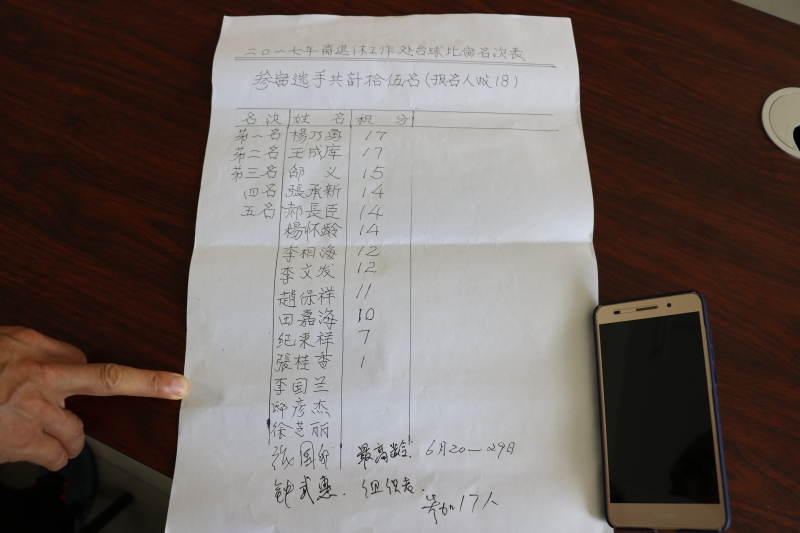 二〇一七年离退休工作处台球比赛名次表
参赛选手共計拾伍名(报名人数18)
名次 姓名 积分
第一名 楊乃勇 17
第二名 王成库 17
第三名 邸义 15
四名 張承新 14
五名 郝長臣 14
楊怀龄 14
李桐海 12
李文发 12
趙保祥 11
田嘉海 10
纪来祥 7
張桂香 1
李国兰
邸彦杰
徐芝丽
张国 最高龄. 6月20—29日
钟武惠. 组织者.
参加17人